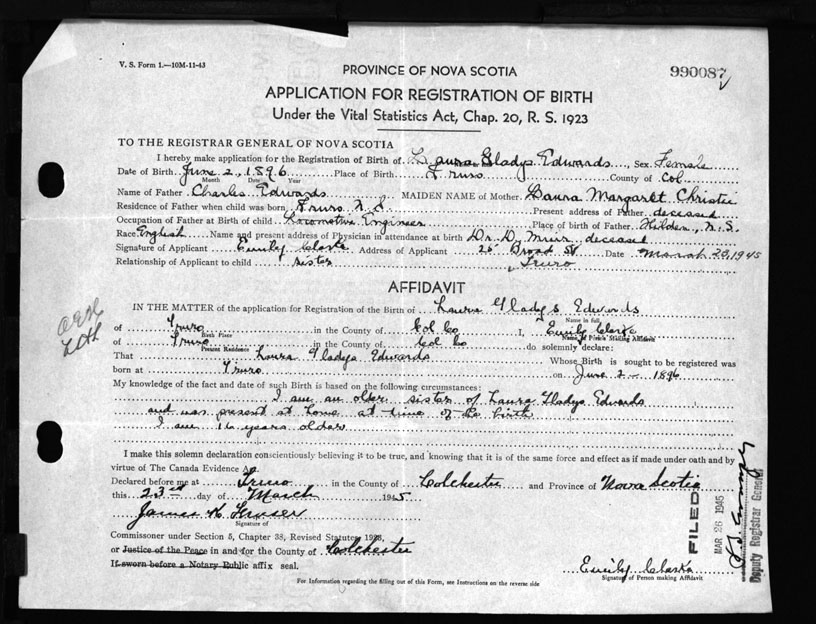 V. S. Form 1.—10M-11-43
990087
PROVINCE OF NOVA SCOTIA
APPLICATION FOR REGISTRATION OF BIRTH
Under the Vital Statistics Act, Chap. 20, R. S. 1923
TO THE REGISTRAR GENERAL OF NOVA SCOTIA
I hereby make application for the Registration of Birth of Laura Gladys Edwards, Sex Female
Date of Birth June 2, 1896 Place of Birth Truro County of Col.
Month Date Year
Name of Father Charles Edwards MAIDEN NAME of Mother Laura Margaret Christie
Residence of Father when child was born Truro N.S. Present address of Father deceased
Occupation of Father at Birth of child Locomotive Engineer Place of birth of Father Hilden, N.S.
Race English Name and present address of Physician in attendance at birth Dr. D. Muir, deceased
Signature of Applicant Emily Clarke Address of Applicant 25 Broad St Date March 23, 1945
Relationship of Applicant to child sister Truro
AFFIDAVIT
IN THE MATTER of the application for Registration of the Birth of Laura Gladys Edwards
Name in full
of Truro in the County of Col Co I, Emily Clarke
Birth Place Name of Person Making Affidavit
of Truro in the County of Col Co do solemnly declare:
Present Residence
That Laura Gladys Edwards Whose Birth is sought to be registered was
born at Truro on June 2 – 1896
My knowledge of the fact and date of such Birth is based on the following circumstances:
I am an older sister of Laura Gladys Edwards
and was present at home at time of the birth
I am 16 years older
I make this solemn declaration conscientiously believing it to be true, and knowing that it is of the same force and effect as if made under oath and by
virtue of The Canada Evidence Act.
Declared before me at Truro in the County of Colchester and Province of Nova Scotia
this 23rd day of March 1945
James H. Kruser
Signature of
Commissioner under Section 5, Chapter 38, Revised Statutes 1923,
or Justice of the Peace in and for the County of Colchester
If sworn before a Notary Public affix seal.
Emily Clarke
Signature of Person making Affidavit
For Information regarding the filling out of this Form, see Instructions on the reverse side
FILED
MAR 26 1945
Deputy Registrar General